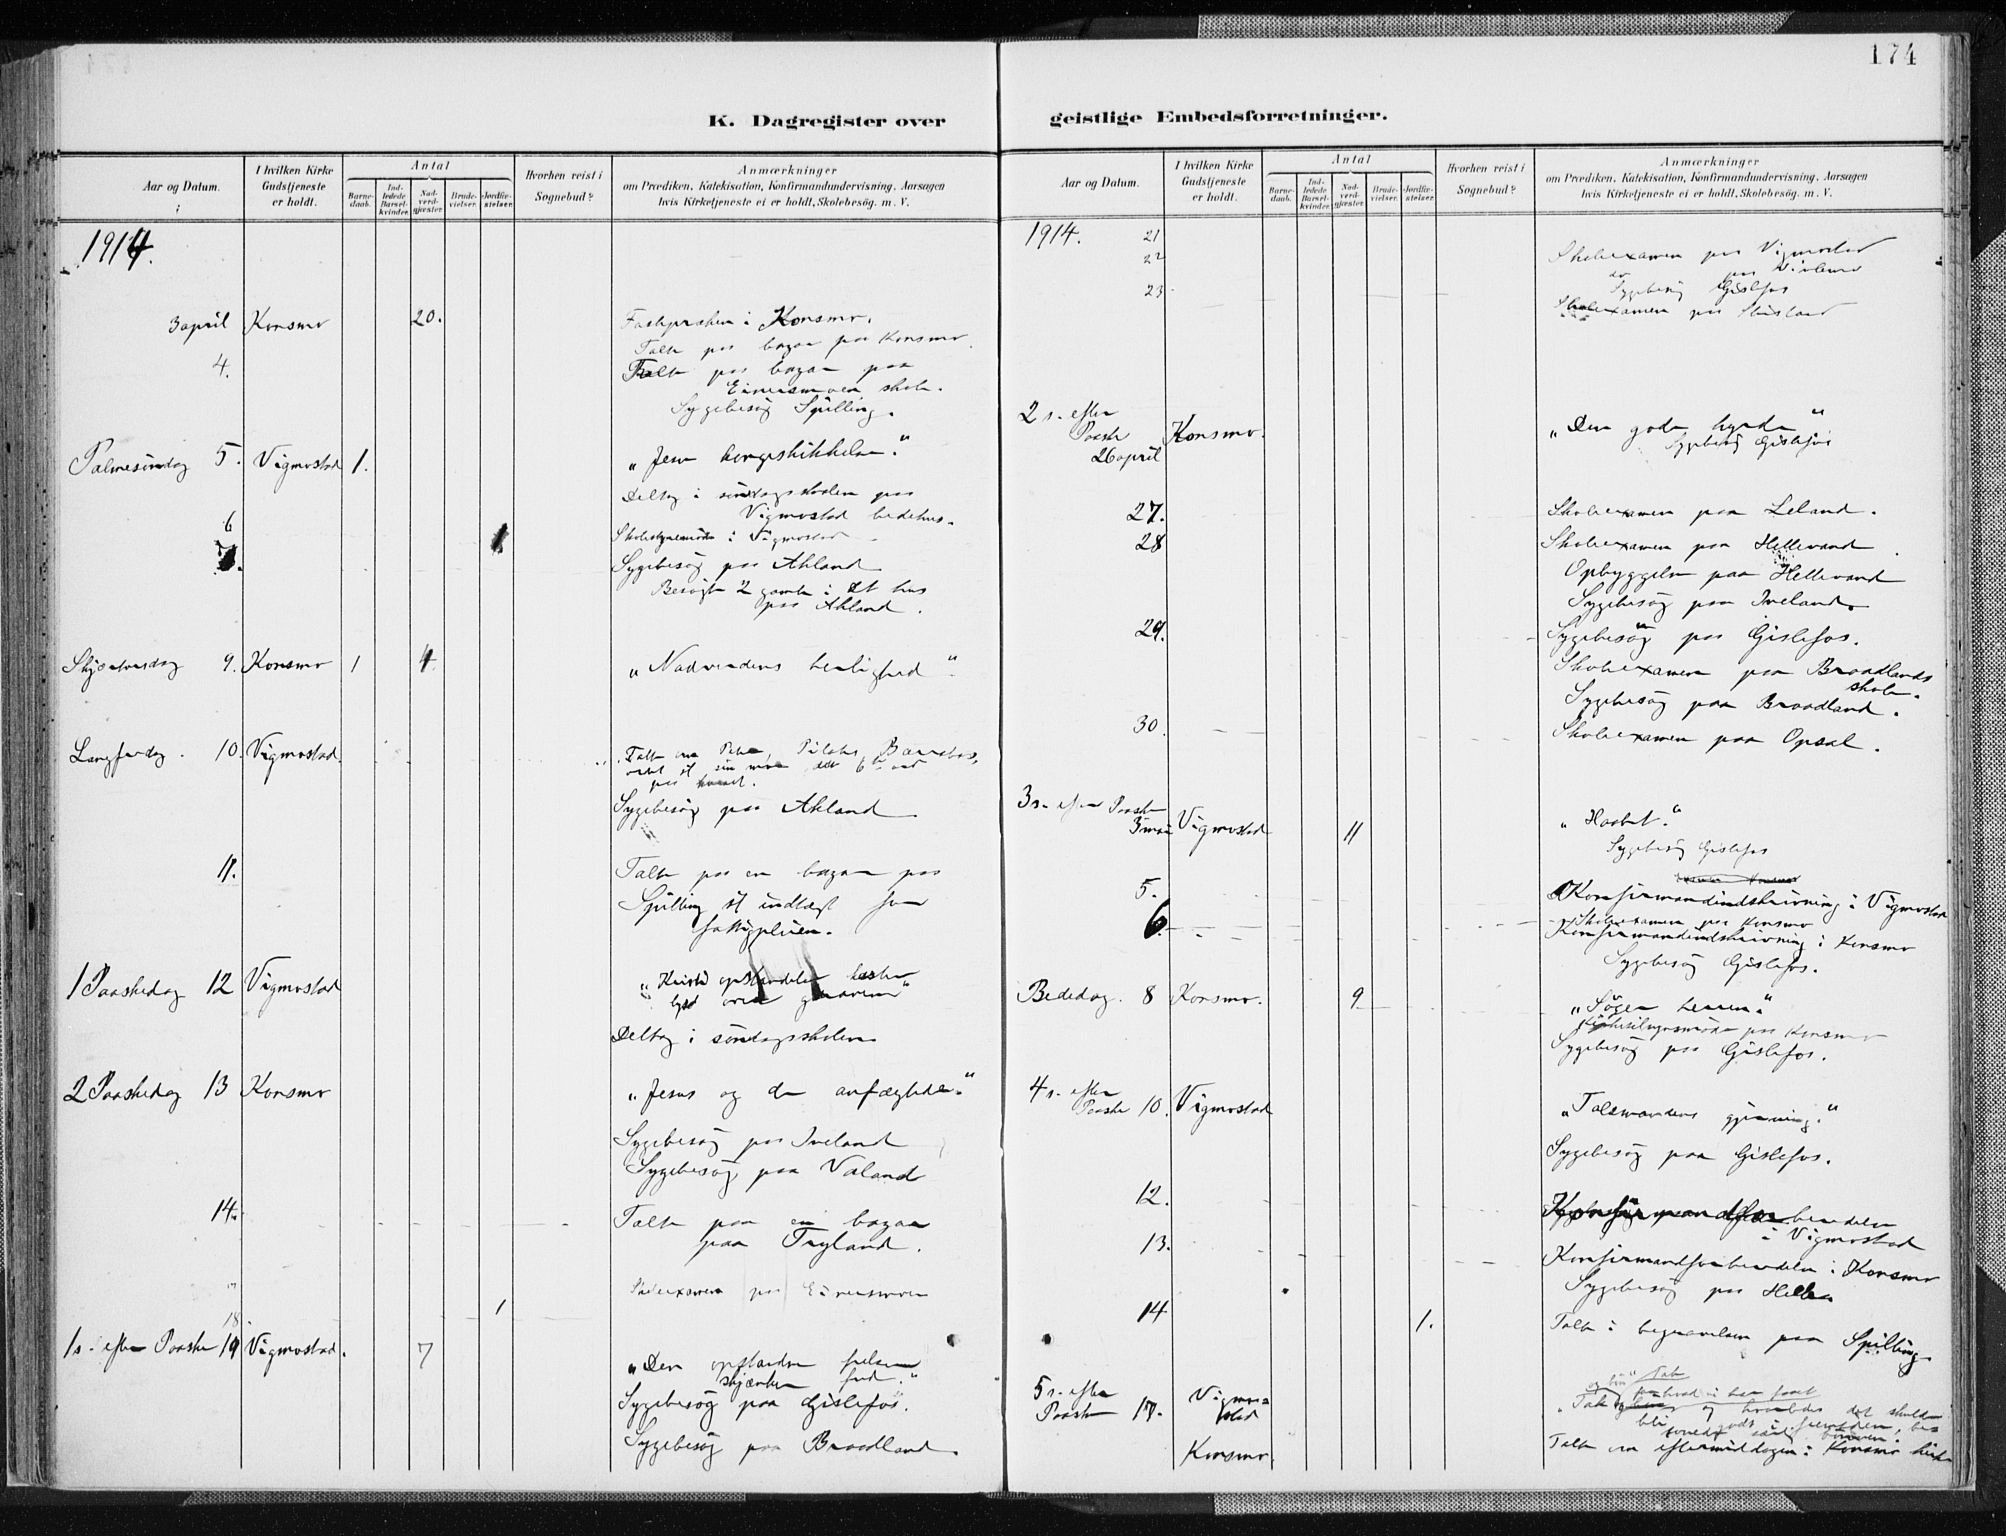 174
K. Dagregister over
geistlige Embedsforretninger.
Aar og Datum.
I hvilken Kirke Gudstjeneste er holdt.
Antal
Barnedaab.
Indledede Barselkvinder.
Nadverdgjæster.
Brudevielser.
Jordfæstelser.
Hvorhen reist i Sognebud?
Anmærkninger
om Prædiken, Katekisation, Konfirmandundervisning, Aarsagen
hvis Kirketjeneste ei er holdt, Skolebesög. m. V.
1914.
3 april Konsmo 20. Fastepræken i Konsmo.
Talte paa bazar paa Konsmo.
4. Talte paa bazar paa
Eimersmoen skole.
Sygebesög Spilling.
Palmesöndag 5. Vigmostad 1. "Jesu kongeskikkelse."
Deltog i söndagsskolen paa
Vigmostad bedehus.
6 Skolestyremöde i Vigmostad
7. Sygebesög paa Ahland
Besögte 2 gamle i et hus
paa Ahland.
Skjærtorsdag 9. Konsmo 1 4 "Nadverdens herlighed".
Langfredag. 10. Vigmostad. Talte om Peter, Pilatus, Barrabas,
Sygebesög paa Ahland
11. Talte paa en bazar paa
Spilling til indtægt for
fattigpleien.
1 Paaskedag 12 Vigmostad "Kristi opstandelse kaster
lys over graven"
Deltog i söndagsskolen
2 Paaskedag 13 Konsmo "Jesus og de anfægtede."
Sygebesög paa Iveland
Sygebesög paa Valand
14. Talte paa en bazar
paa Tryland.
17 Skoleexamen paa Eimersmoen
18. 1
1 s. efter Paaske 19 Vigmostad. 7 "Den opstandne frelser
skjænker fred."
Sygebesög paa Gislefos.
Sygebesög paa Braadland.
Aar og Datum.
I hvilken Kirke Gudstjeneste er holdt.
Antal
Barnedaab.
Indledede Barselkvinder.
Nadverdgjæster.
Brudevielser.
Jordfæstelser.
Hvorhen reist i Sognebud?
Anmærkninger
om Prædiken, Katekisation, Konfirmandundervisning, Aarsagen
hvis Kirketjeneste ei er holdt, Skolebesög. m. V.
1914. 21 Skoleexamen paa Vigmostad
22 do paa
Sygebesög Gislefos
23 Skoleexamen paa
2 s. efter
Paaske
26 april Konsmo. "Den gode hyrde"
Sygebesög Gislefos
27. Skoleexamen paa Leland.
28 Skoleexamen paa Hellevand.
Opbyggelse paa Hellevand
Sygebesög paa Iveland.
29. Sygebesög paa Gislefos.
Skoleexamen paa Braadlands
skole.
Sygebesög paa Braadland.
30. Skoleexamen paa Opsal.
3 s. efter Paaske
3 mai Vigmostad 11 "Haabet."
Sygebesög Gislefos
5. Konfirmandindskrivning i Vigmostad
6. Skoleexamen paa Konsmo
Konfirmandindskrivning i Konsmo
Sygebesög Gislefos.
Bededag. 8 Konsmo. 9 "Söger herren."
Kirketilsynsmöde paa Konsmo
Sygebesög paa Gislefos.
4 s. efter
Paaske 10. Vigmostad "Talsmandens gjerning."
Sygebesög paa Gislefos.
12. Konfirmandforberedelse
i Vigmostad
13. Konfirmandforberedelse i Konsmo
Sygebesög paa Helle
14 1. Talte i begravelsen paa Spilling
5 s. efter
Paaske 17. Vigmostad
Konsmo. Talte om eftermiddagen i Konsmo kirke